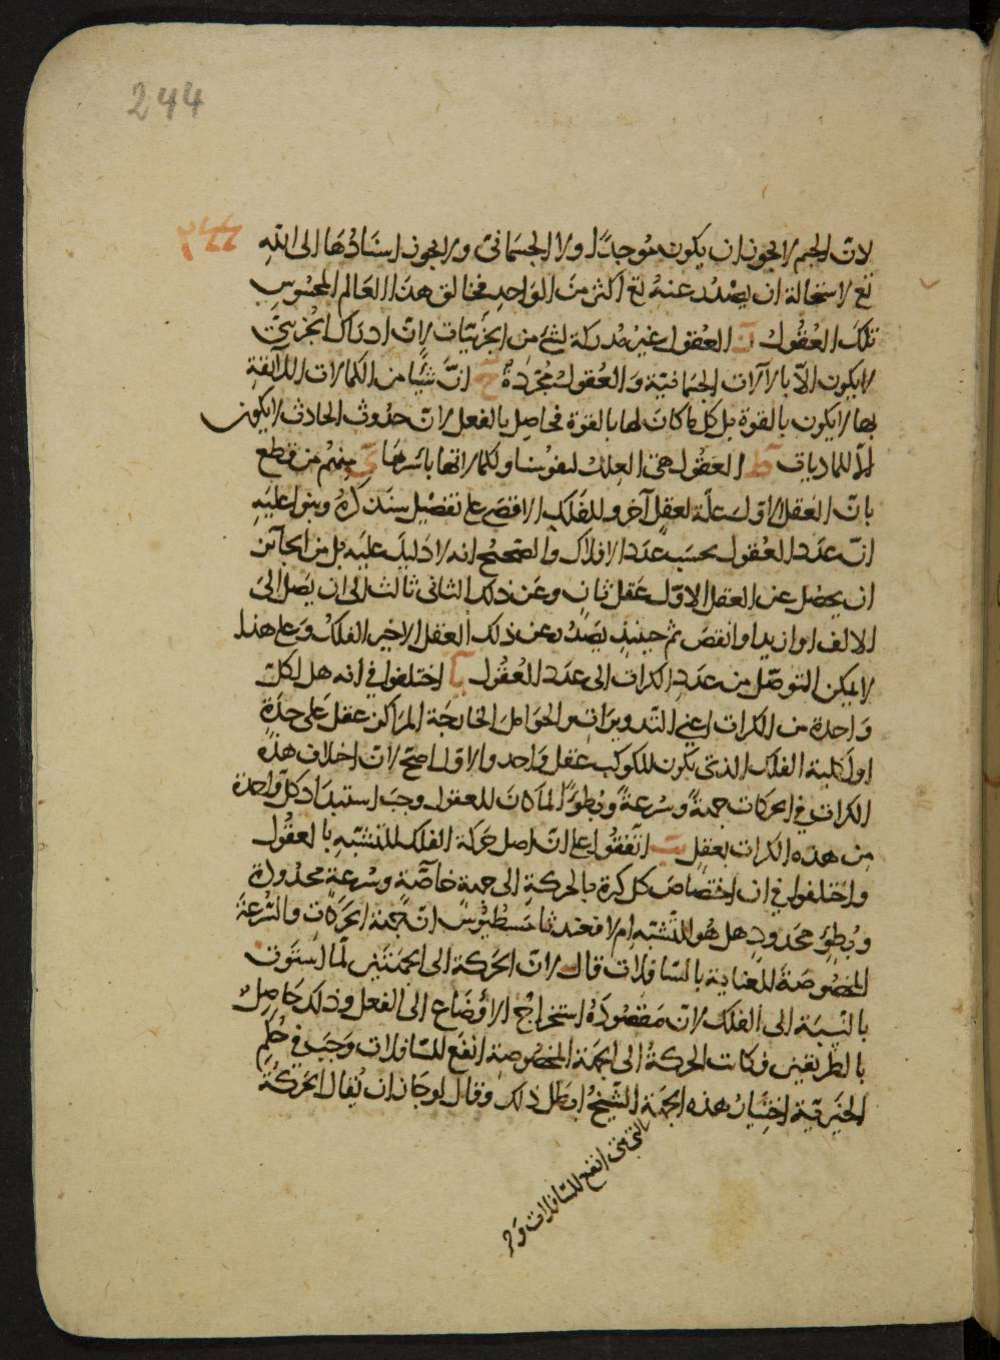 244
٢٤٤
لان الجسم لا يجوز ان يكون موجدًا ولا الجسماني ولا يجوز اسنادها الى الله
تع لاستحالة ان يصدر عنه تع اكثر من الواحد فخالق هذا العالم المحسوس
تلك العقول ز العقول غير مدركة لشئ من الجزئيات لان ادراك الجزئي
لا يكون الا بالآلات الجسمانية والعقول مجردة ح ان شيئا من الكمالات اللائقة
بها لا يكون بالقوة بل كل ما كان لها بالقوة فحاصل بالفعل لان حدوث الحادث لا يكون
الا للماديات ط العقول هي العلل لنفوسنا ولكمالاتها باسرها ى منهم من قطع
بان العقل الاول علة لعقل آخر وللفلك الاقصى على تفصيل سنذكره وبنوا عليه
ان عدد العقول بحسب عدد الافلاك والصحيح انه لا دليل عليه بل من الجائز
ان يحصل عن العقل الاول عقل ثان وعن ذلك الثاني ثالث الى ان يصل الى
الالف او ازيد او انقص ثم حينئذ يصدر عن ذلك العقل الاخير الفلك وعلى هذا
لا يمكن التوصل من عدد الكرات الى عدد العقول يا اختلفوا في انه هل لكل
واحدة من الكرات اعني التدويرات والحوامل الخارجة المراكز عقل على حدة
او لكلية الفلك الذي يكون للكوكب عقل واحد والاول اصح لان اختلاف هذه
الكرات في الحركات جهةً وسرعةً وبطؤًا لما كان للعقول وجب استبداد كل واحدة
من هذه الكرات بعقل يب اتفقوا على ان اصل حركة الفلك للتشبه بالعقول
واختلفوا في ان اختصاص كل كرة بالحركة الى جهة خاصة وسرعة محدودة
وبطؤ محدود هل هو للتشبه ام لا فعند ثامسطيوس ان جهة الحركات والسرعة
المخصوصة للعناية بالسافلات قال لان الحركة الى الجهتين لما استوت
بالنسبة الى الفلك لان مقصوده استخراج الاوضاع الى الفعل وذلك حاصل
بالطريقين وكانت الحركة الى الجهة المخصوصة انفع للسافلات وجب في حكم
الخيرية اختيار هذه الجهة الشيخ ابطل ذلك وقال لو جاز ان يقال الحركة
التي هي انفع للسافلات و